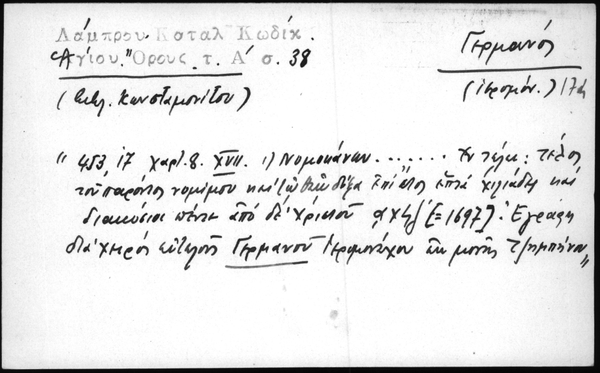 Λάμπρου Καταλ Κωδίκ.
Ἁγίου Ὄρους τ. Α΄ σ. 38
Γερμανός
(Βιβλ. Κωνσταμονίτου)
(ἱερομόν.) 17
" 453, 17 χαρτ. 8. XVII. 1) Νομοκάνων ...... Ἐν τέλει: Τέλος
τοῦ παρόντος νομίμου καὶ τῷ Θεῷ δόξα Ἐπὶ ἔτος ἑπτὰ χιλιάδες καὶ
διακόσια πέντε ἀπὸ δὲ Χριστοῦ αχϟζ΄ [=1697]. Ἐγράφη
διὰ χειρὸς εὐτελοῦς Γερμανοῦ ἱερομονάχου ἐκ μονῆς "